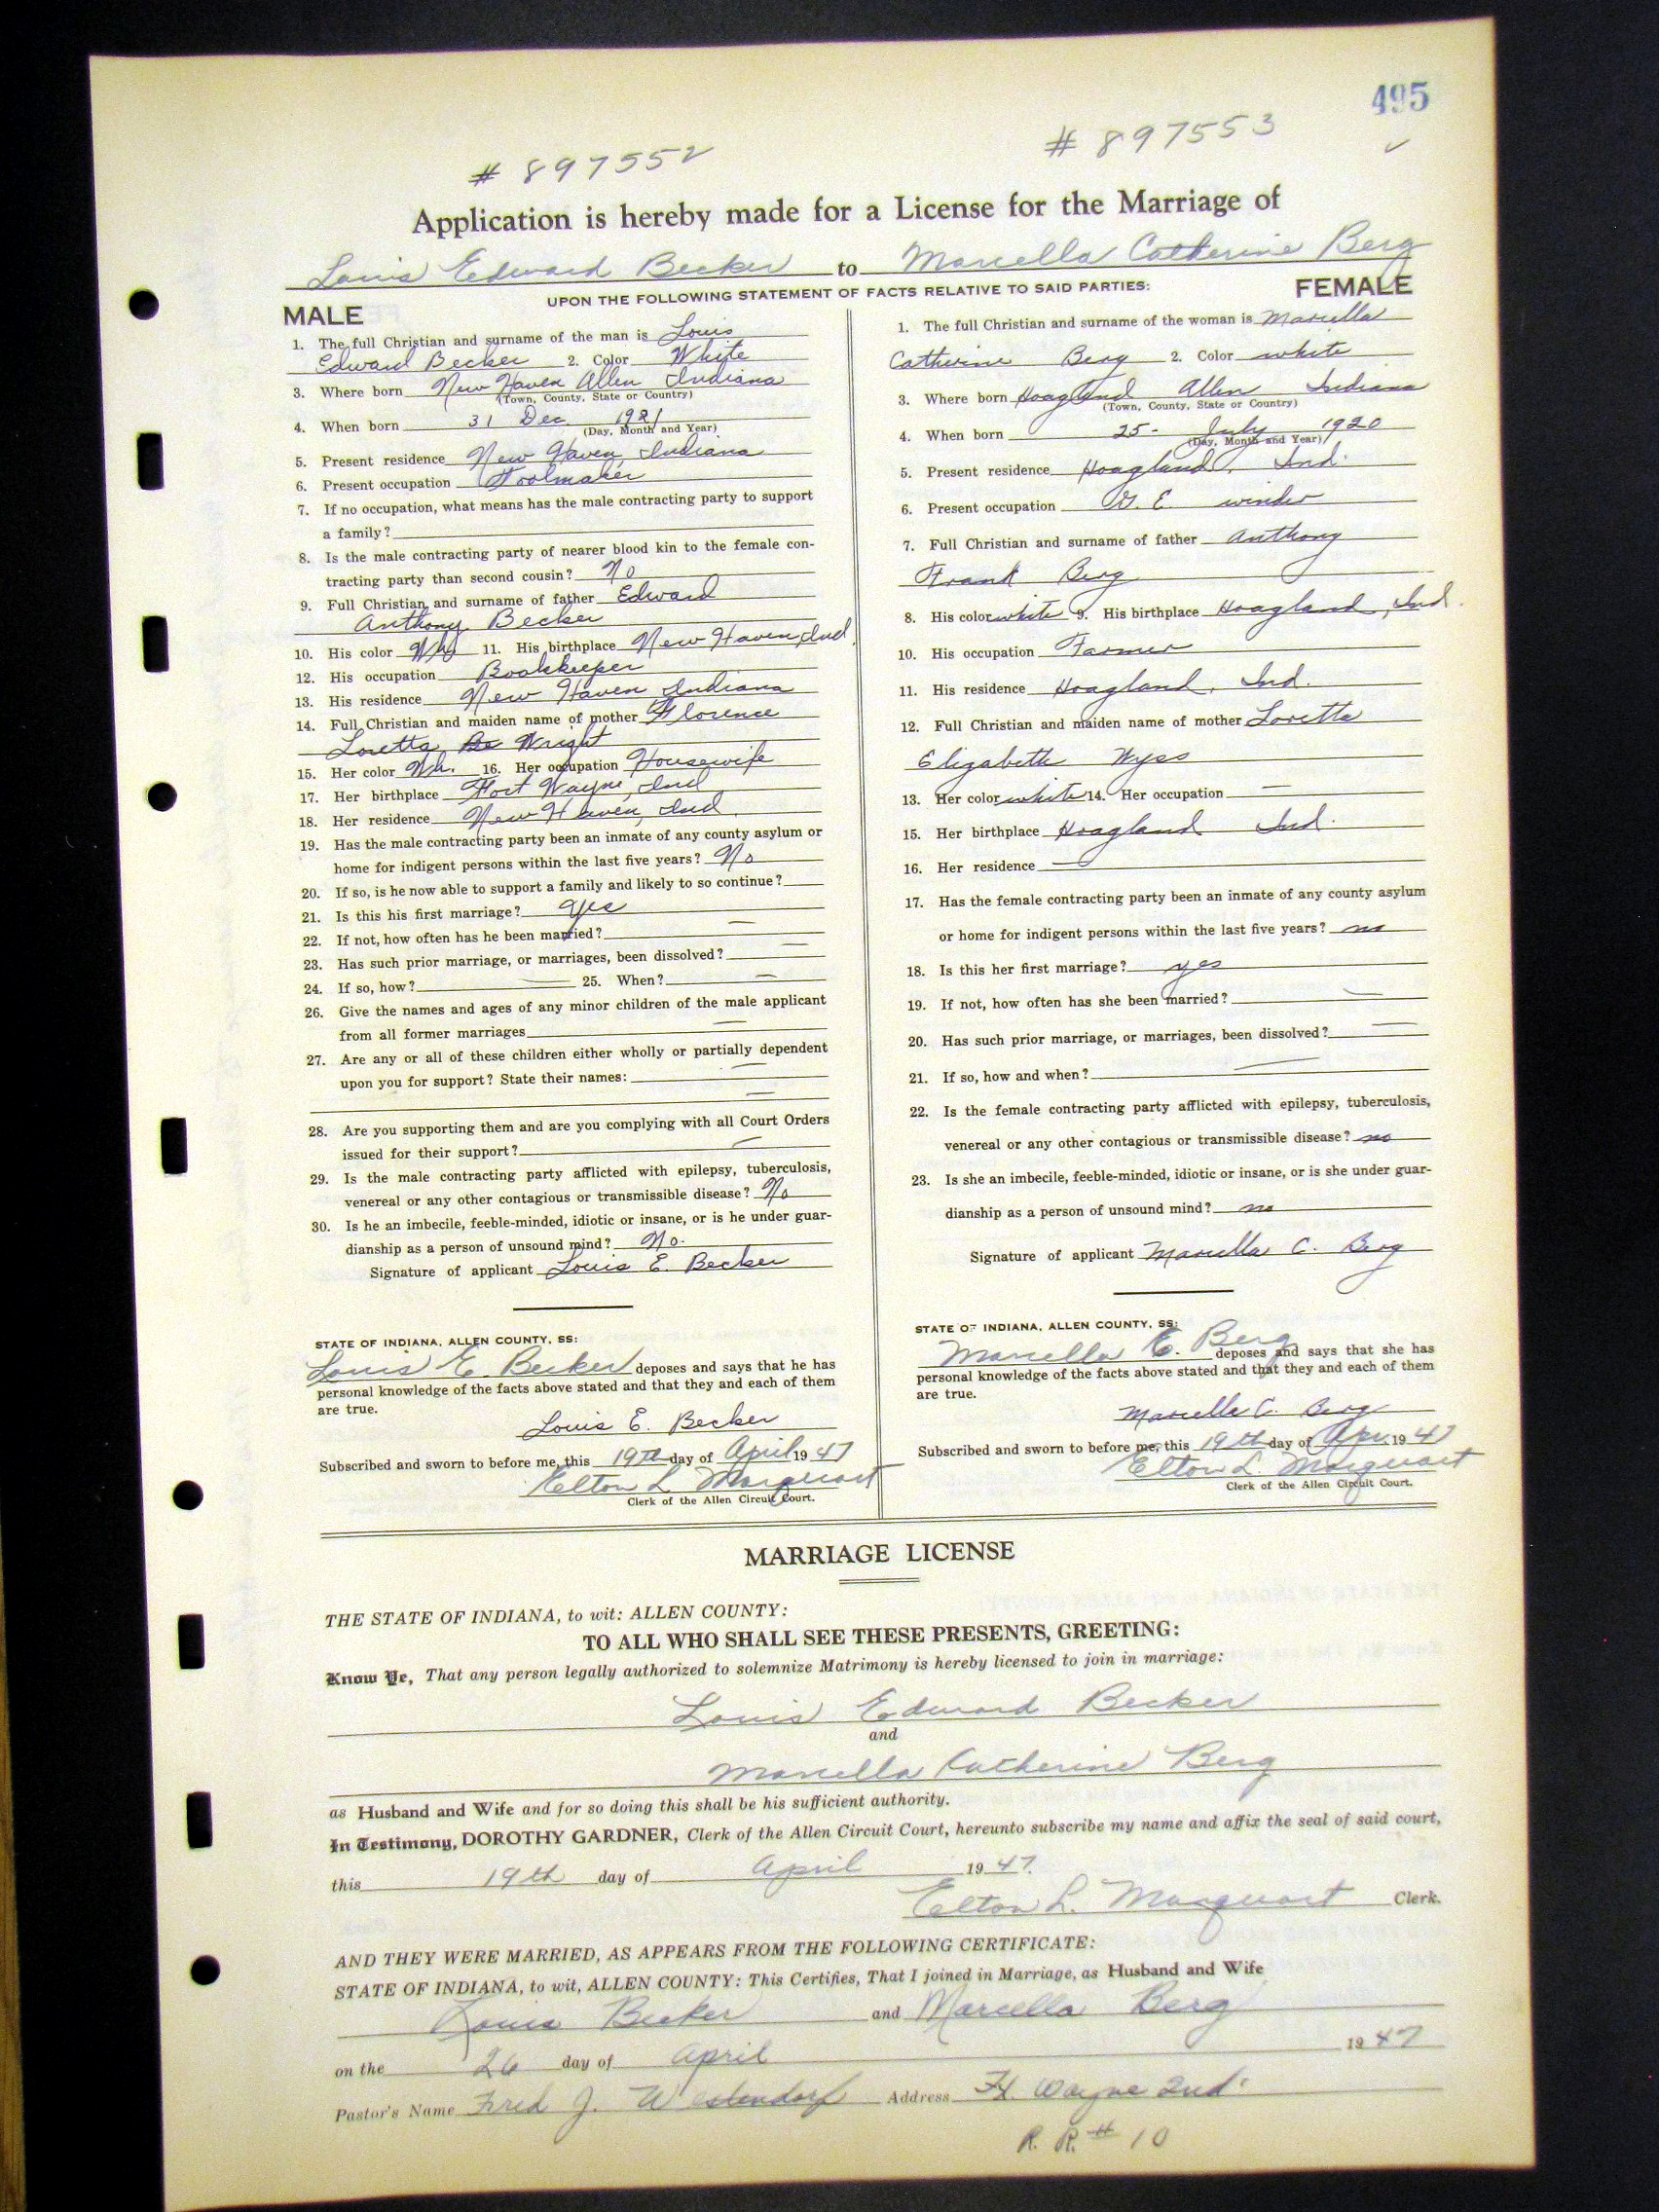 495
# 897552 # 897553
Application is hereby made for a License for the Marriage of
Louis Edward Becker to Marcella Catherine Berg
UPON THE FOLLOWING STATEMENT OF FACTS RELATIVE TO SAID PARTIES:
MALE
1. The full Christian and surname of the man is Louis
Edward Becker 2. Color White
3. Where born New Haven Allen Indiana
(Town, County, State or Country)
4. When born 31 Dec 1921
(Day, Month and Year)
5. Present residence New Haven, Indiana
6. Present occupation Toolmaker
7. If no occupation, what means has the male contracting party to support
a family?
8. Is the male contracting party of nearer blood kin to the female con-
tracting party than second cousin? No
9. Full Christian and surname of father Edward
Anthony Becker
10. His color Wh 11. His birthplace New Haven, Ind.
12. His occupation Bookkeeper
13. His residence New Haven Indiana
14. Full Christian and maiden name of mother Florence
Loretta Be Wright
15. Her color Wh. 16. Her occupation Housewife
17. Her birthplace Fort Wayne, Ind
18. Her residence New Haven, Ind.
19. Has the male contracting party been an inmate of any county asylum or
home for indigent persons within the last five years? No
20. If so, is he now able to support a family and likely to so continue?
21. Is this his first marriage? Yes
22. If not, how often has he been married? —
23. Has such prior marriage, or marriages, been dissolved? —
24. If so, how? — 25. When? —
26. Give the names and ages of any minor children of the male applicant
from all former marriages —
27. Are any or all of these children either wholly or partially dependent
upon you for support? State their names: —
—
28. Are you supporting them and are you complying with all Court Orders
issued for their support? —
29. Is the male contracting party afflicted with epilepsy, tuberculosis,
venereal or any other contagious or transmissible disease? No
30. Is he an imbecile, feeble-minded, idiotic or insane, or is he under guar-
dianship as a person of unsound mind? No.
Signature of applicant Louis E. Becker
STATE OF INDIANA, ALLEN COUNTY, SS:
Louis E. Becker deposes and says that he has
personal knowledge of the facts above stated and that they and each of them
are true.
Louis E. Becker
Subscribed and sworn to before me, this 19th day of April 1947
Elton L. Marquart
Clerk of the Allen Circuit Court.
FEMALE
1. The full Christian and surname of the woman is Marcella
Catherine Berg 2. Color white
3. Where born Hoagland Allen Indiana
(Town, County, State or Country)
4. When born 25- July 1920
(Day, Month and Year)
5. Present residence Hoagland, Ind.
6. Present occupation G. E. winder
7. Full Christian and surname of father Anthony
Frank Berg
8. His color white 9. His birthplace Hoagland, Ind.
10. His occupation Farmer
11. His residence Hoagland, Ind.
12. Full Christian and maiden name of mother Loretta
Elizabeth Wyss
13. Her color white 14. Her occupation —
15. Her birthplace Hoagland Ind.
16. Her residence —
17. Has the female contracting party been an inmate of any county asylum
or home for indigent persons within the last five years? no
18. Is this her first marriage? yes
19. If not, how often has she been married? —
20. Has such prior marriage, or marriages, been dissolved? —
21. If so, how and when? —
22. Is the female contracting party afflicted with epilepsy, tuberculosis,
venereal or any other contagious or transmissible disease? no
23. Is she an imbecile, feeble-minded, idiotic or insane, or is she under guar-
dianship as a person of unsound mind? no
Signature of applicant Marcella C. Berg
STATE OF INDIANA, ALLEN COUNTY, SS:
Marcella C. Berg deposes and says that she has
personal knowledge of the facts above stated and that they and each of them
are true.
Marcella C. Berg
Subscribed and sworn to before me, this 19th day of Apr. 1947
Elton L. Marquart
Clerk of the Allen Circuit Court.
MARRIAGE LICENSE
THE STATE OF INDIANA, to wit: ALLEN COUNTY:
TO ALL WHO SHALL SEE THESE PRESENTS, GREETING:
Know Ye, That any person legally authorized to solemnize Matrimony is hereby licensed to join in marriage:
Louis Edward Becker
and
Marcella Catherine Berg
as Husband and Wife and for so doing this shall be his sufficient authority.
In Testimony, DOROTHY GARDNER, Clerk of the Allen Circuit Court, hereunto subscribe my name and affix the seal of said court,
this 19th day of April 1947.
Elton L. Marquart Clerk.
AND THEY WERE MARRIED, AS APPEARS FROM THE FOLLOWING CERTIFICATE:
STATE OF INDIANA, to wit, ALLEN COUNTY: This Certifies, That I joined in Marriage, as Husband and Wife
Louis Becker and Marcella Berg
on the 26 day of April 1947
Pastor's Name Fred J. Westendorf Address Ft. Wayne Ind.
R. R. # 10